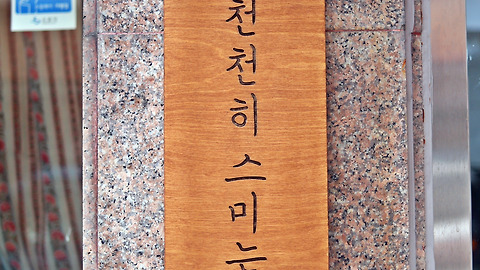 천천히 스미는